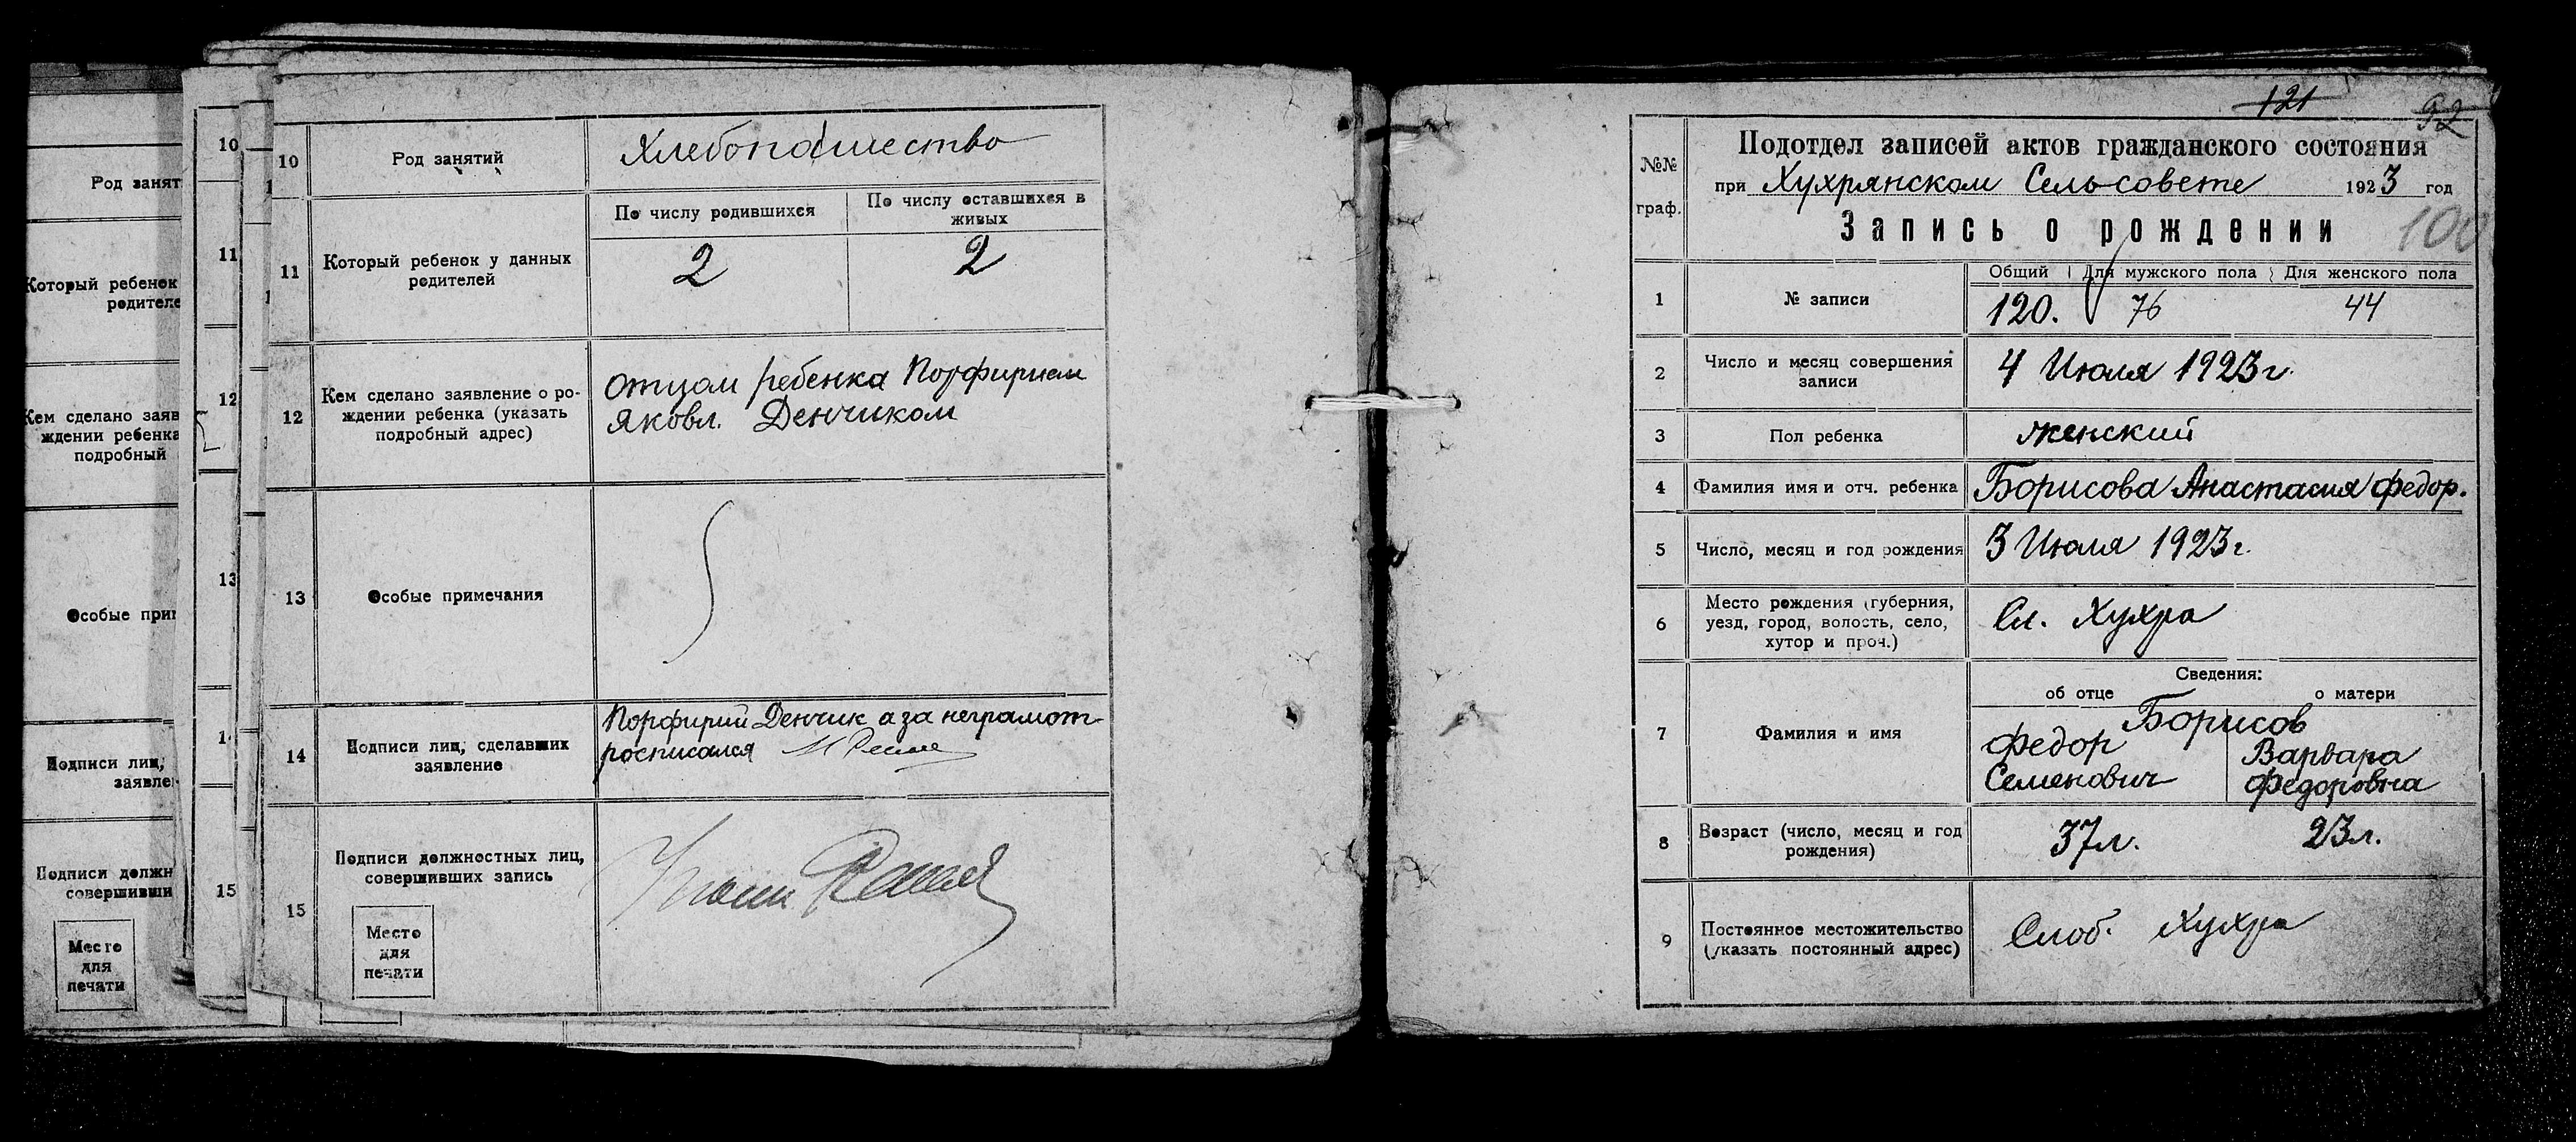 Род занят
Который ребенок
родителе
Кем сделано заяв
ждении ребенка
подробный
Особые при
Подписи лиц,
заявле
Подписи должн
совершивши
Место
для
печати
10
11
12
13
14
15
10 Род занятий Хлебопашество
11 Который ребенок у данных родителей
По числу родившихся По числу оставшихся в живых
2 2
12 Кем сделано заявление о ро-
ждении ребенка (указать
подробный адрес)
отцом ребенка Порфирием
Яковл. Денчиком
13 Особые примечания
14 Подписи лиц, сделавших
заявление
Порфирий Денчик а за неграмот-
росписался
15 Подписи должностных лиц,
совершивших запись
Место
для
печати
121
92
№№
граф.
Подотдел записей актов гражданского состояния
при Хухрянском Сельсовете 1923 год
Запись о рождении
100
Общий Для мужского пола Для женского пола
1 № записи 120. 76 44
2 Число и месяц совершения
записи
4 Июля 1923 г.
3 Пол ребенка женский
4 Фамилия имя и отч. ребенка Борисова Анастасия Федор.
5 Число, месяц и год рождения 3 Июля 1923 г.
6 Место рождения (губерния,
уезд, город, волость, село,
хутор и проч.)
Сл. Хухра
Сведения:
об отце о матери
7 Фамилия и имя
Борисов
Федор Варвара
Семенович Федоровна
8 Возраст (число, месяц и год
рождения)
37 л. 23 л.
9 Постоянное местожительство
(указать постоянный адрес)
Слоб. Хухра